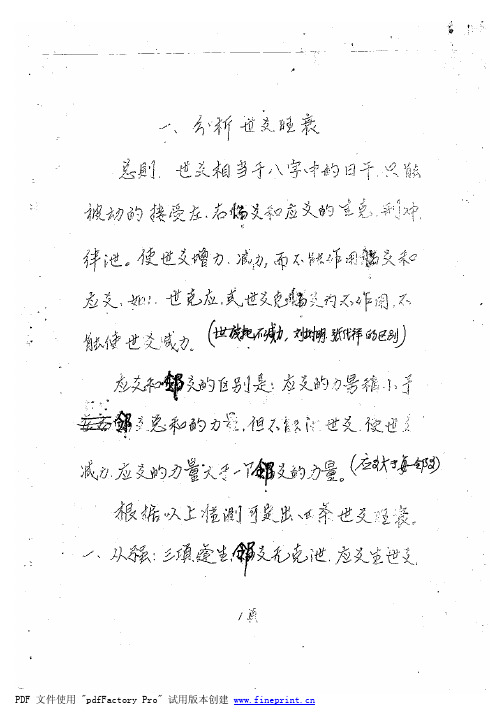 一、分析世爻旺衰
总则. 世爻相当于八字中的日干,只能
被动的接受左.右临爻和应爻的生克.刑冲
绊泄。使世爻增力.减力,而不能作用临爻和
应爻,如:. 世克应,或世爻克临爻为不作用,不
能使世爻减力。(世旋把不减力,
应爻和邻爻的区别是:应爻的力量稍小于
左右邻爻总和的力量,但不能泄世爻,使世爻
减力.应爻的力量大于一个邻爻的力量。(应爻大于每邻爻)
根据以上推测可定出四条世爻旺衰。
一、从强:三项逢生,邻爻无克泄.应爻生世爻.
1页
PDF 文件使用 "pdfFactory Pro" 试用版本创建 www.fineprint.cn